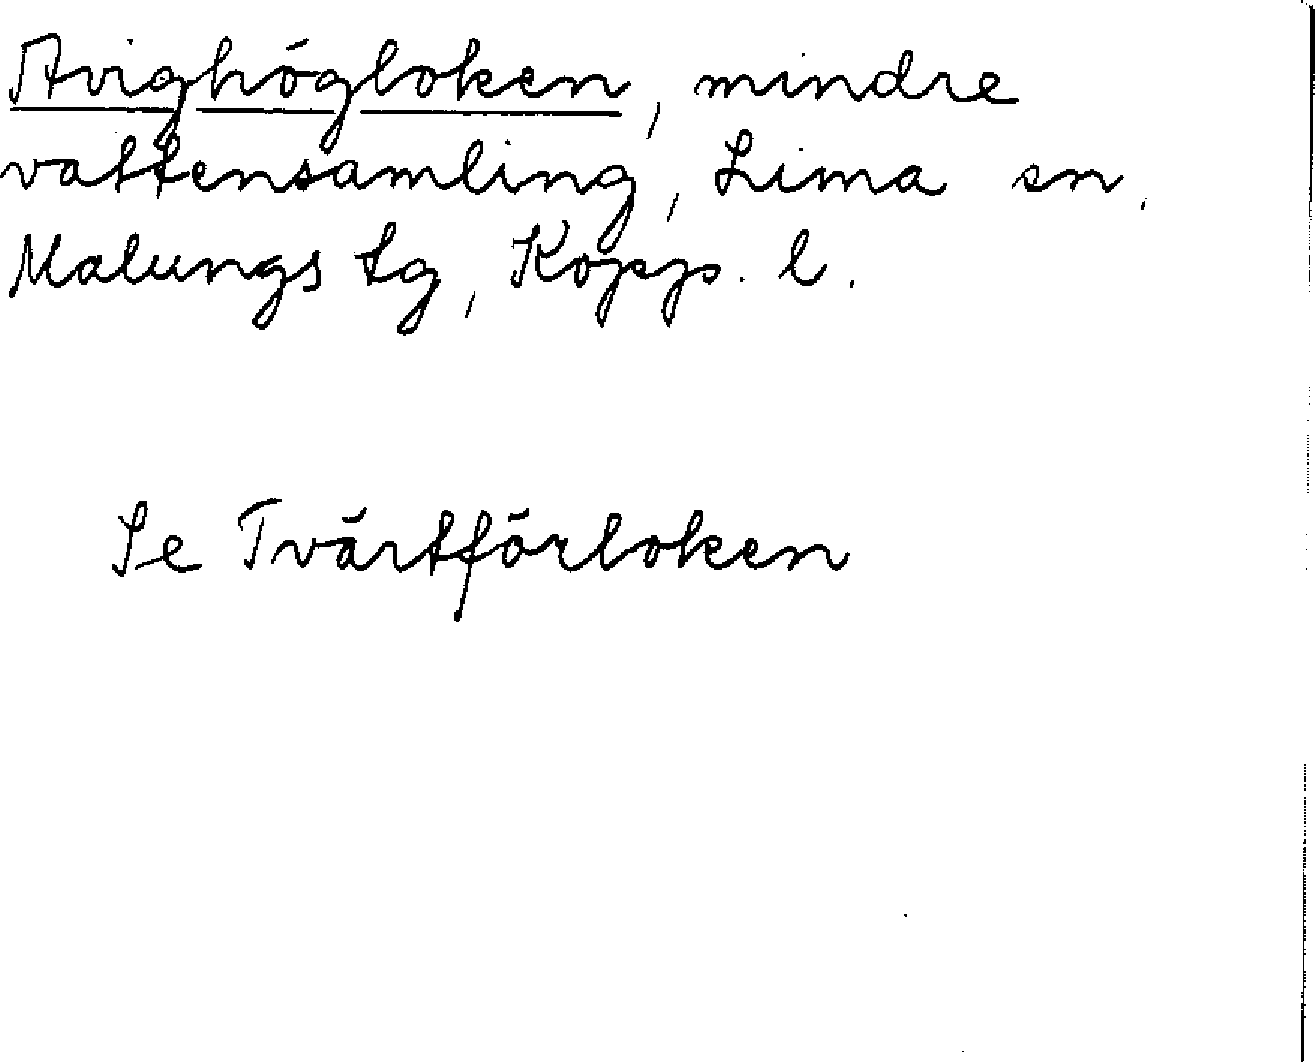 Avighögloken, mindre
vattensamling, Lima sn,
Malungs tg, Kopp. l.
Se Tvärtförloken